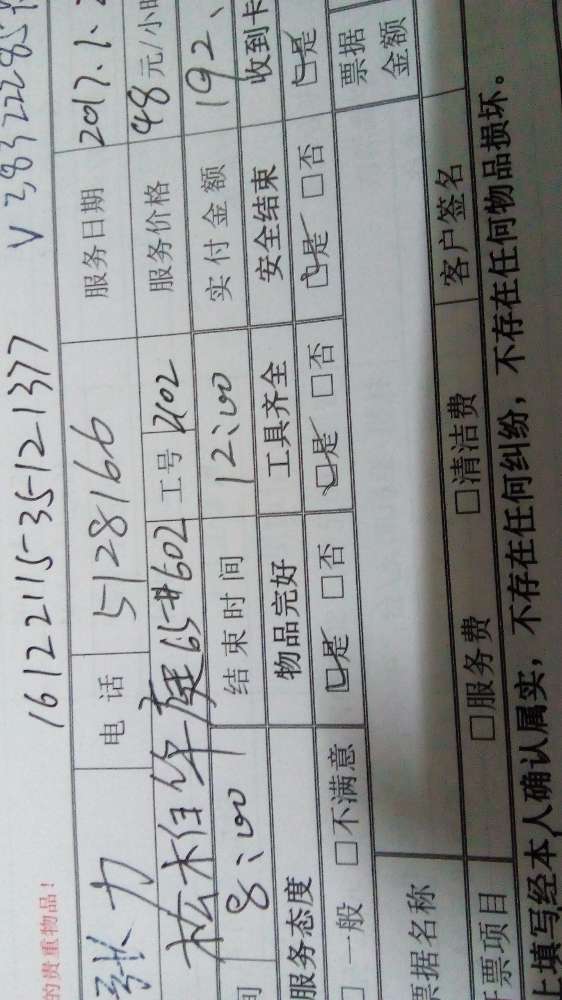 的贵重物品！
16122115-35121377 V38322285
张力 电话 5128166 服务日期 2017.1.
松柏华庭65#602 工号 2102 服务价格 48元/小时
间 8:00 结束时间 12:00 实付金额 192
服务态度 物品完好 工具齐全 安全结束 收到卡
□一般 □不满意 ☑是 □否 ☑是 □否 ☑是 □否 ☑是
票据名称 票据金额
票项目 □服务费 □清洁费 客户签名
上填写经本人确认属实，不存在任何纠纷，不存在任何物品损坏。